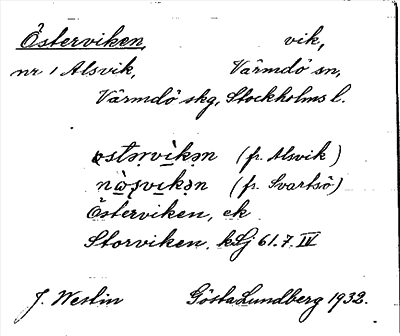 Österviken, vik,
nr 1 Alsvik, Värmdö sn,
Värmdö skg, Stockholms l.
østərvìkən (fr. Alsvik)
(fr. Svartsö)
Österviken, ek
Storviken, kLj 61.7.IV
J. Westin Gösta Lundberg 1932.